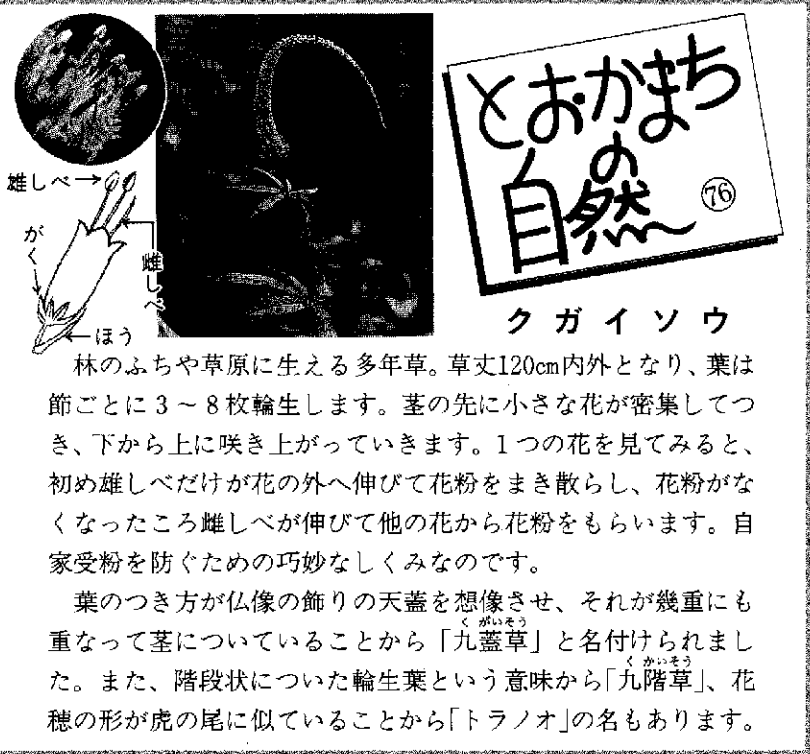 とおかまち
の
自然
76
雄しべ
がく
雌しべ
ほう
クガイソウ
林のふちや草原に生える多年草。草丈120cm内外となり、葉は
節ごとに3～8枚輪生します。茎の先に小さな花が密集してつ
き、下から上に咲き上がっていきます。1つの花を見てみると、
初め雄しべだけが花の外へ伸びて花粉をまき散らし、花粉がな
くなったころ雌しべが伸びて他の花から花粉をもらいます。自
家受粉を防ぐための巧妙なしくみなのです。
葉のつき方が仏像の飾りの天蓋を想像させ、それが幾重にも
くがいそう
重なって茎についていることから「九蓋草」と名付けられまし
くかいそう
た。また、階段状についた輪生葉という意味から「九階草」、花
穂の形が虎の尾に似ていることから「トラノオ」の名もあります。